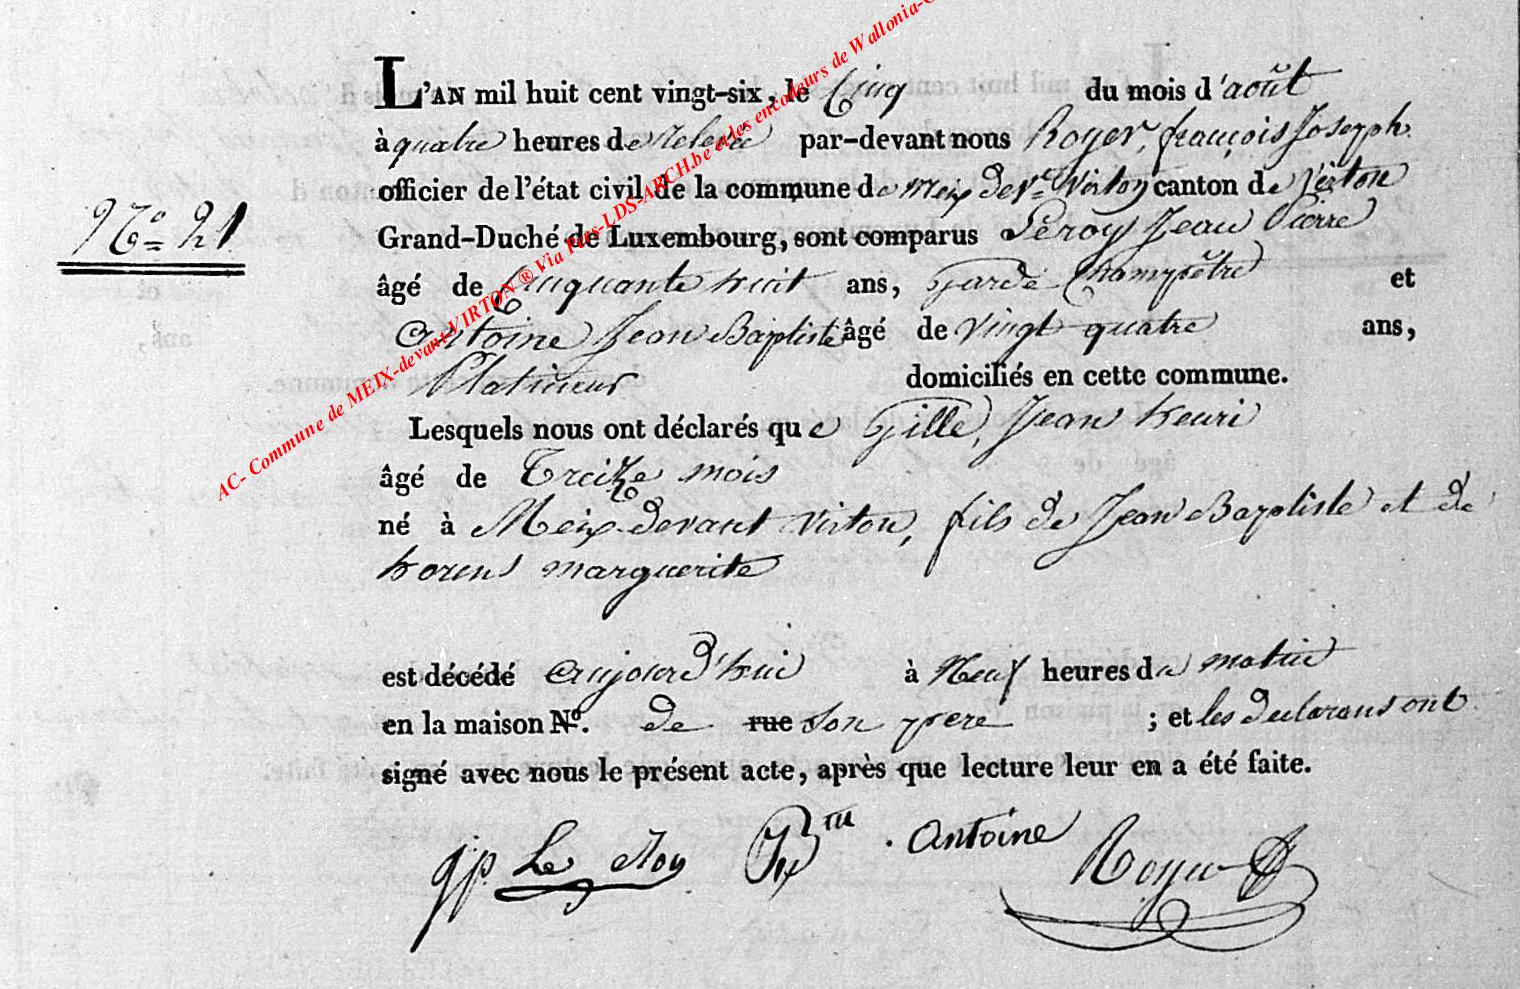 L'AN mil huit cent vingt-six, le Cinq du mois d'août
à quatre heures de relevée par-devant nous Royer, françois Joseph
officier de l'état civil de la commune de Meix devt Virton canton de Virton
N° 21
Grand-Duché de Luxembourg, sont comparus Leroy Jean Pierre
âgé de Cinquante huit ans, Garde Champêtre et
Antoine Jean Baptiste âgé de vingt quatre ans,
Platineur domiciliés en cette commune.
Lesquels nous ont déclarés que Gille, Jean henri
âgé de Treize mois
né à Meix devant virton, fils de Jean Baptiste et de
marguerite
est décédé aujourd'hui à Neuf heures du matin
en la maison N°. de rue son pere ; et les declarans ont
signé avec nous le présent acte, après que lecture leur en a été faite.
jp. Le Roy JBte Antoine Royer
AC- Commune de MEIX-devant-VIRTON ® Via Pars-LDS-ARCH.be et les encodeurs de Wallonia-